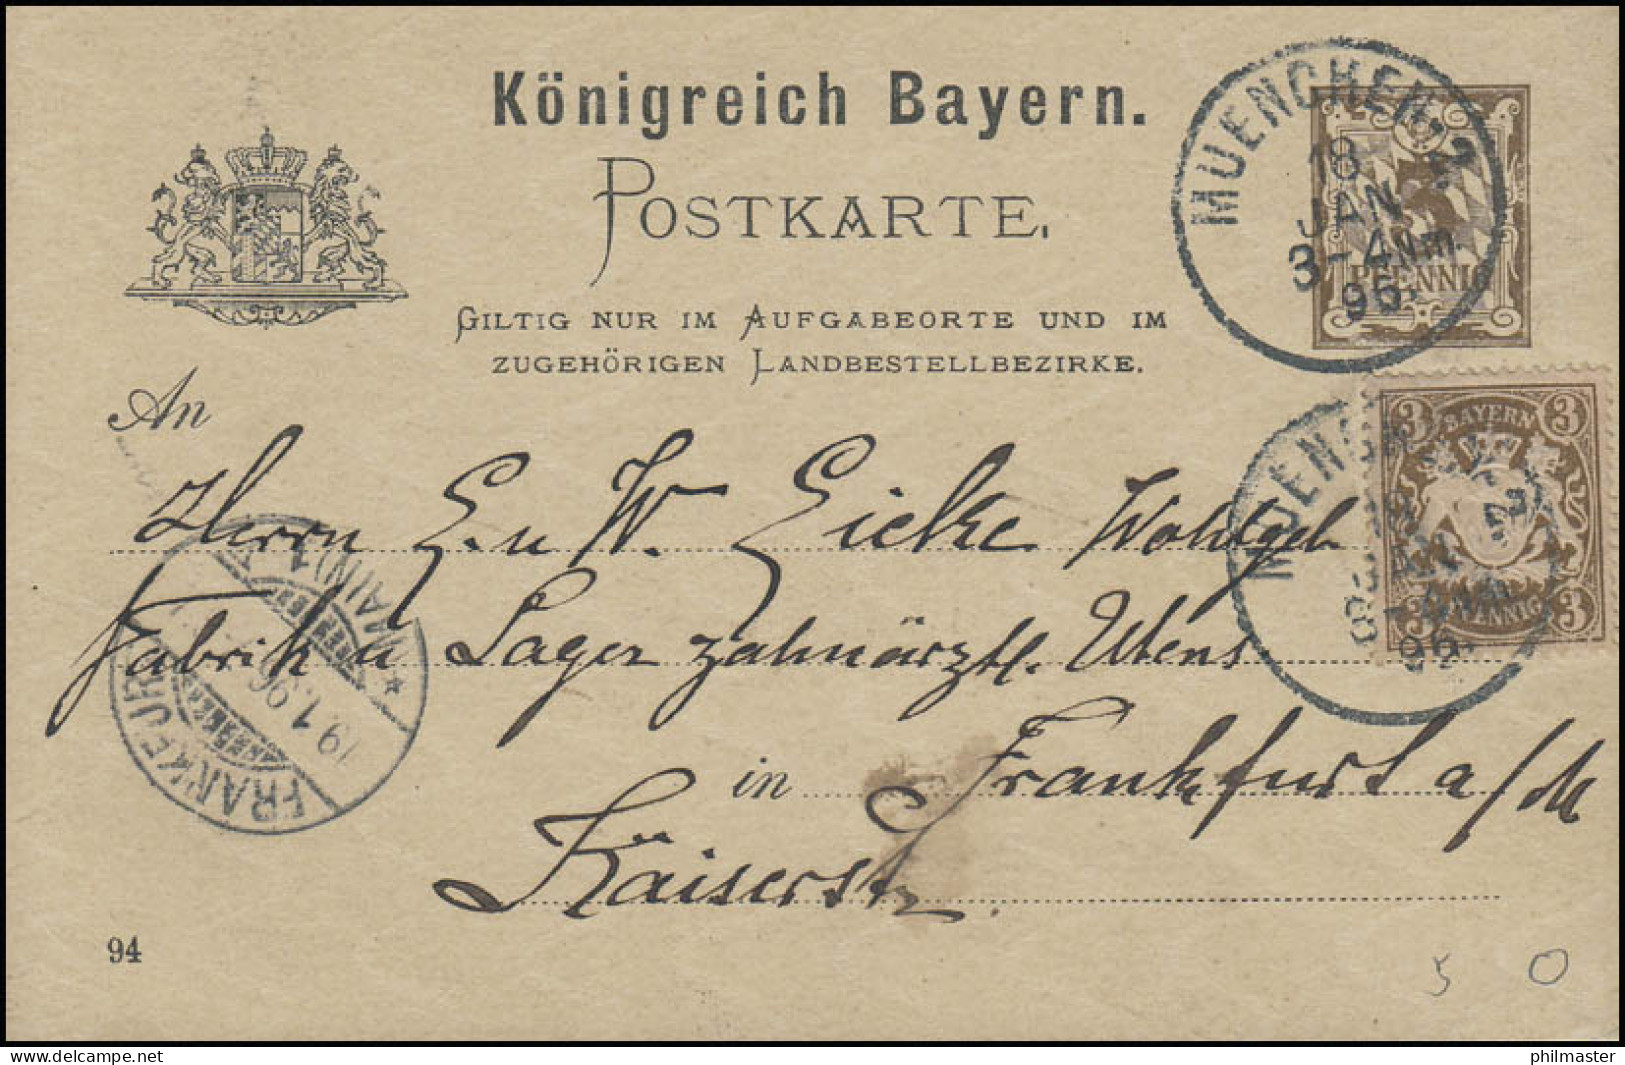 Königreich Bayern.
POSTKARTE.
GILTIG NUR IM AUFGABEORTE UND IM
ZUGEHÖRIGEN LANDBESTELLBEZIRKE.
MUENCHEN
18
JAN
3-4 Nm.
96.
PFENNIG
3 BAYERN 3
3 PFENNIG 3
MUENCH
96.
An
Herrn E. u W. Eicke Wohlgeb
Fabrik u Lager zahnärztl. Utens.
in Frankfurt a/M
Kaiserstr.
FRANKFURT (MAIN) 1 *
19.1.96
94
5 0
philmaster